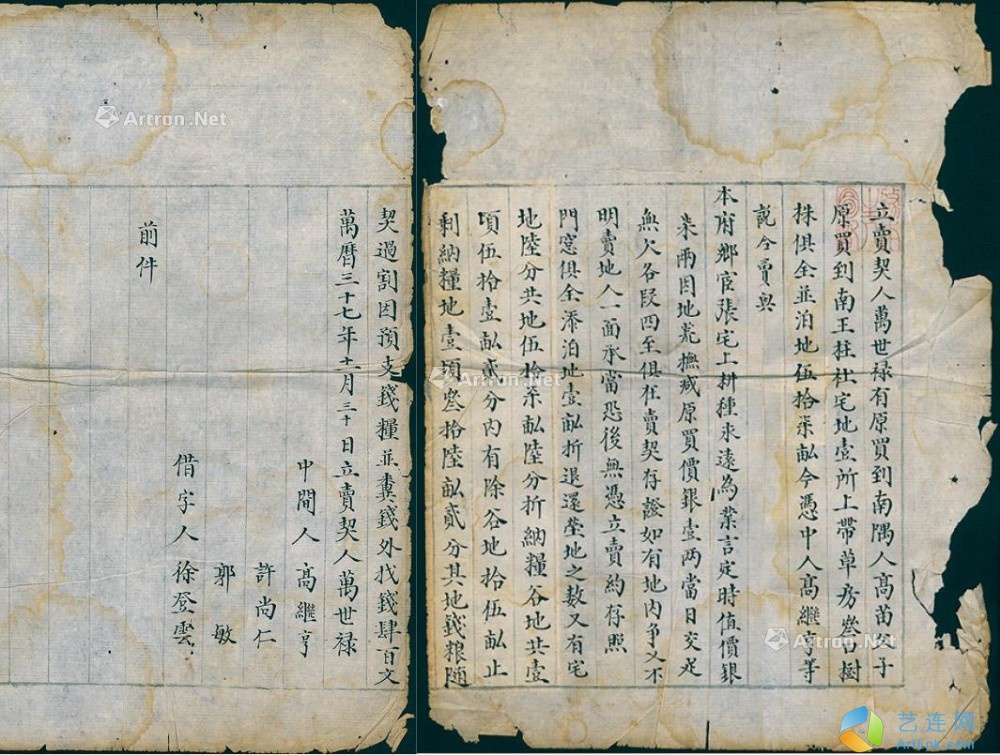 立賣契人萬世禄有原買到南隅人高苗父子
原買到南王莊社宅地壹所上帶草房叁白樹
株俱全並泊地伍拾柒畝今憑中人高繼亨等
說今賣與
本府鄉官張宅上耕種永遠為業言定時值價銀
柒兩因地荒撫減原買價銀壹兩當日交足
無欠各段四至俱在賣契存證如有地內爭乂不
明賣地人一面承當恐後無憑立賣約存照
門窓俱全添泊地壹畝折退還塋地之數又有宅
地陸分共地伍拾柒畝陸分折納糧谷地共壹
頃伍拾壹畝貳分內有除谷地拾伍畝止
剩納糧地壹頃叁拾陸畝貳分其地錢粮隨
契過割因預支錢糧並糞錢外找錢肆百文
萬曆三十七年十一月三十日立賣契人萬世禄
中間人高繼亨
許尚仁
郭敏
借字人徐登雲
前件
Artron.Net
Artron.Net
Artron.Net
艺连网
ArtLok.com